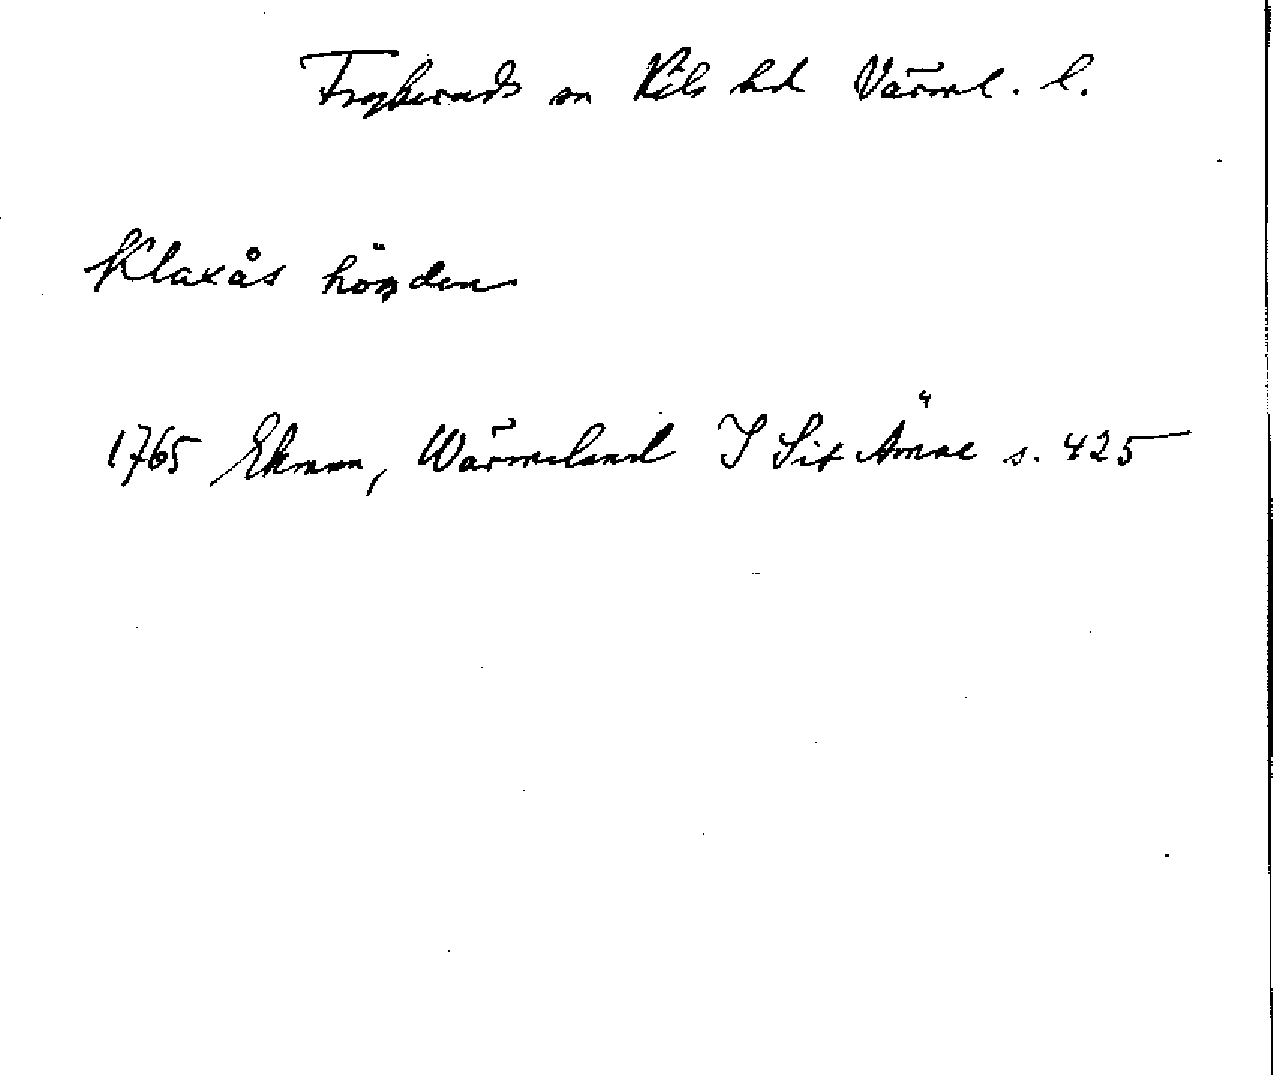 Frykeruds sn Kils hd Värml. l.
Klaxås höjden
1765 Ekman, Wärmeland I Sit Ämne s. 425